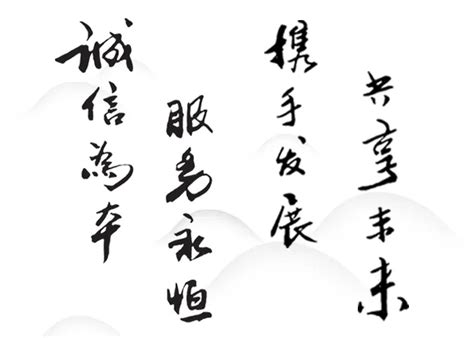 诚信为本
服务永恒
携手发展
共享未来